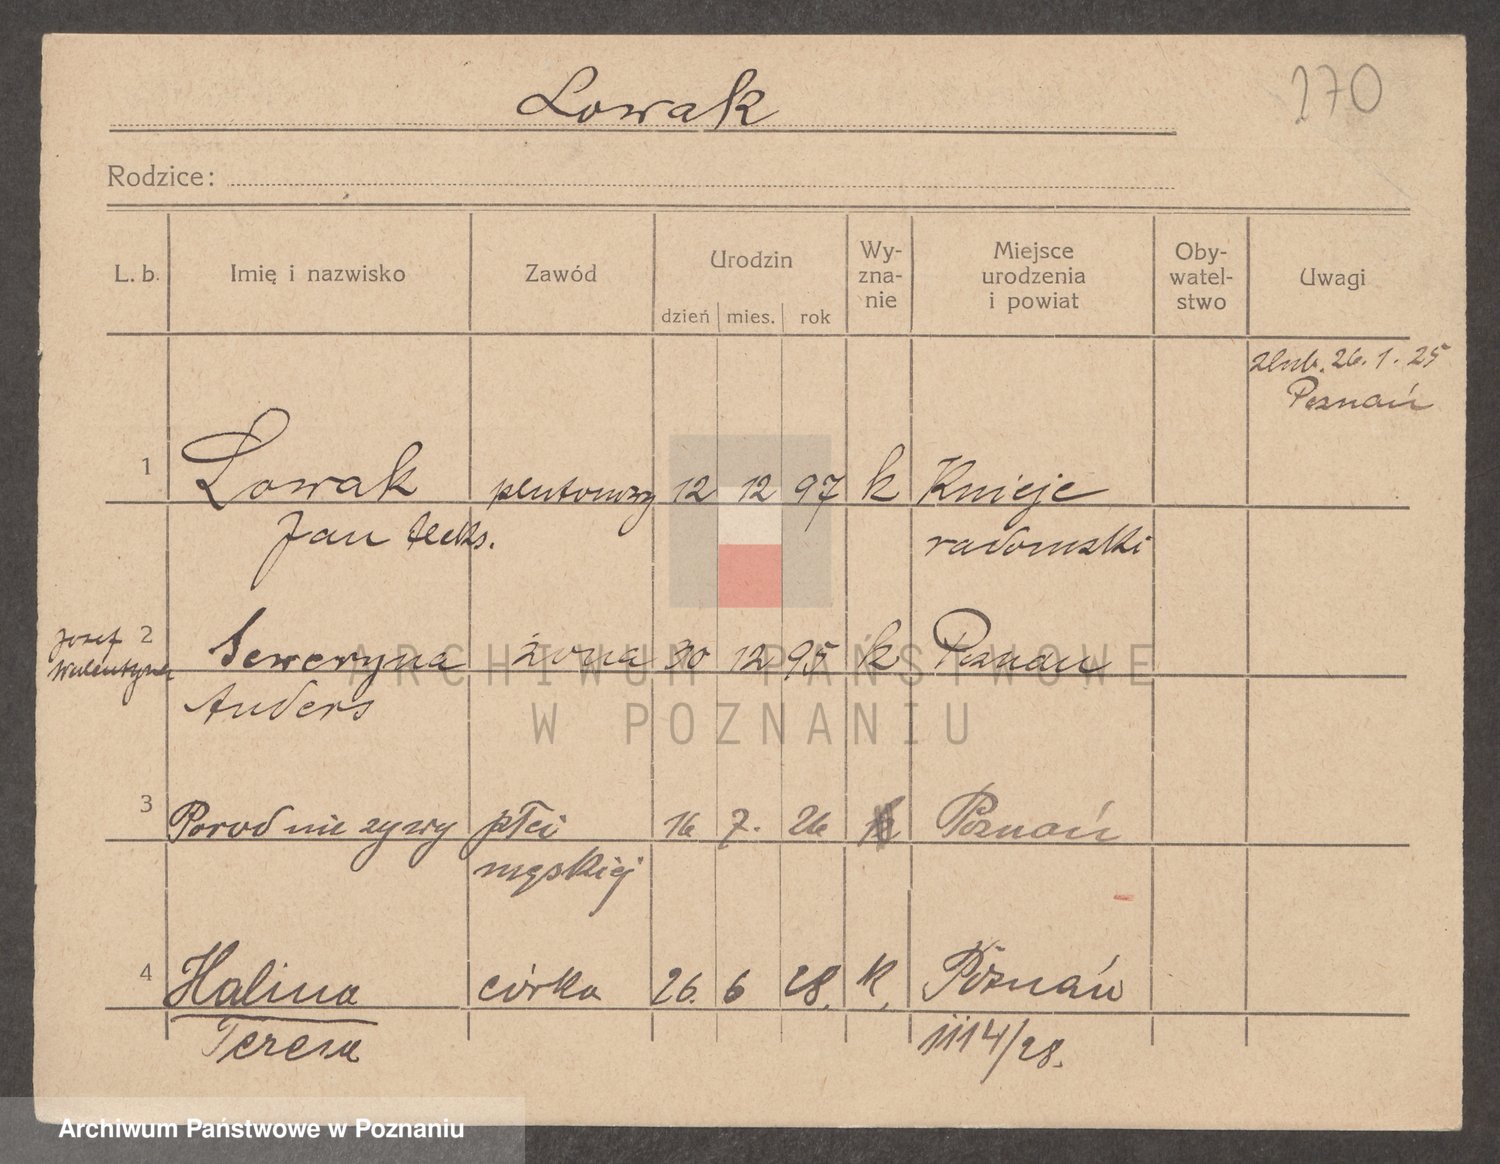 Lowak
170
Rodzice:
L. b.
Imię i nazwisko
Zawód
Urodzin
dzień mies. rok
Wy-
zna-
nie
Miejsce
urodzenia
i powiat
Oby-
watel-
stwo
Uwagi
ślub. 26. 1. 25
Poznań
1 Lowak plutonowy 12 12 97 k Knieje
Jan Aleks. radomski
Józef
Walentyna
2 Seweryna żona 30 12 95 k Poznań
Anders
3 Poród nie żywy płci 16 7. 26 k Poznań
męskiej
4 Halina córka 26. 6 28. k. Poznań
Teresa 1114/28.
ARCHIWUM PAŃSTWOWE
W POZNANIU
Archiwum Państwowe w Poznaniu